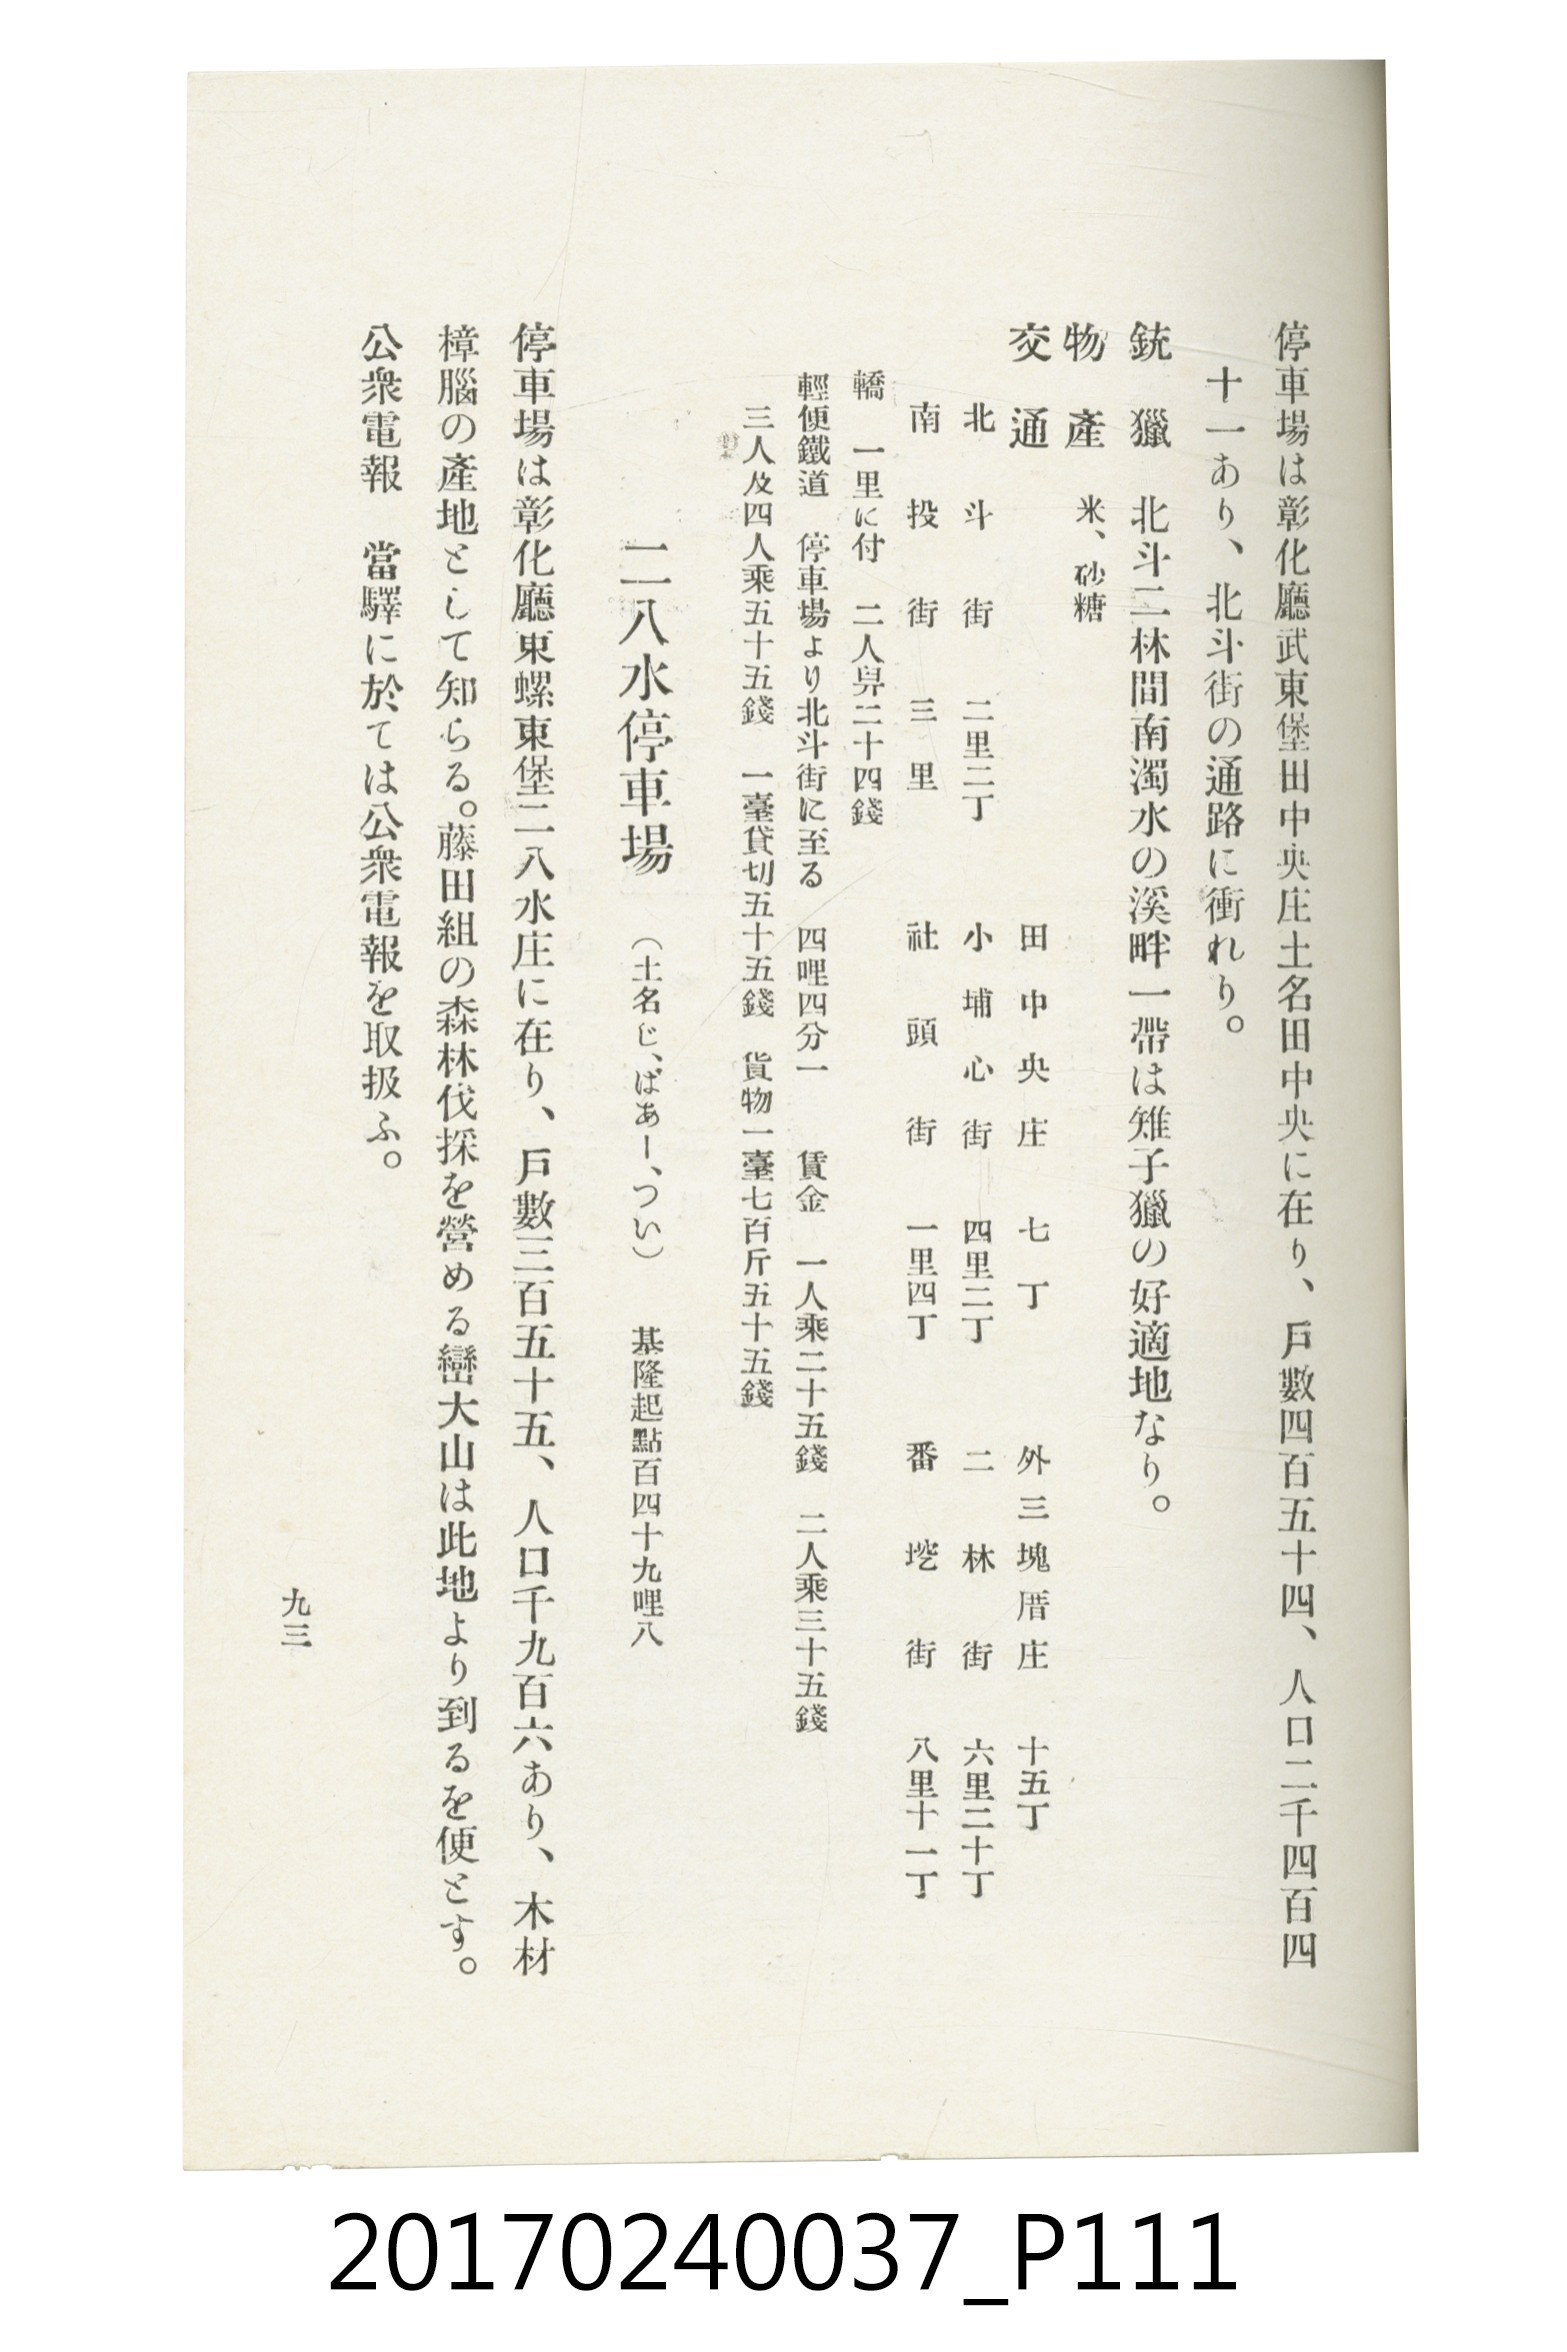 停車場は彰化廳武東堡田中央庄土名田中央に在り、戶數四百五十四、人口二千四百四
十一あり、北斗街の通路に衝れり。
銃獵　北斗二林間南濁水の溪畔一帶は雉子獵の好適地なり。
物產　米、砂糖
交通　田中央庄　七丁　外三塊厝庄　十五丁
北斗街　二里二丁　小埔心街　四里二丁　二林街　六里二十丁
南投街　三里　社頭街　一里四丁　番挖街　八里十一丁
轎　一里に付　二人舁二十四錢
輕便鐵道　停車場より北斗街に至る　四哩四分一　賃金　一人乘二十五錢　二人乘三十五錢
三人及四人乘五十五錢　一臺貸切五十五錢　貨物一臺七百斤五十五錢
二八水停車場　（土名じ、ばあー、つい）　基隆起點百四十九哩八
停車場は彰化廳東螺東堡二八水庄に在り、戶數三百五十五、人口千九百六あり、木材
樟腦の產地として知らる。藤田組の森林伐採を營める巒大山は此地より到るを便とす。
公衆電報　當驛に於ては公衆電報を取扱ふ。
九三
20170240037_P111